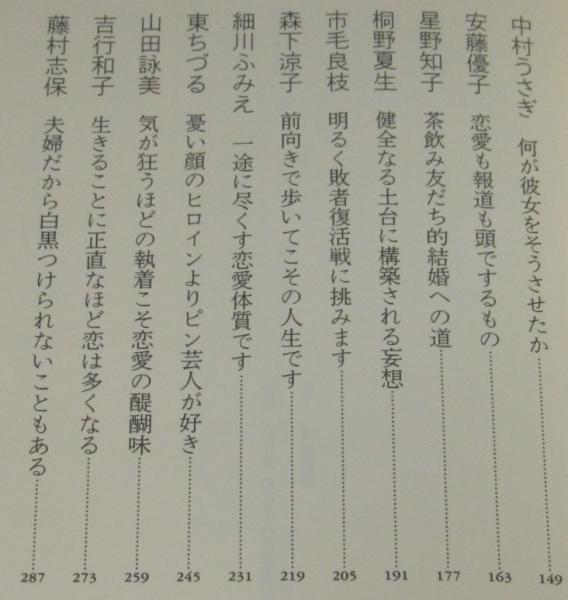 中村うさぎ 何が彼女をそうさせたか……149
安藤優子 恋愛も報道も頭でするもの……163
星野知子 茶飲み友だち的結婚への道……177
桐野夏生 健全なる土台に構築される妄想……191
市毛良枝 明るく敗者復活戦に挑みます……205
森下涼子 前向きで歩いてこその人生です……219
細川ふみえ 一途に尽くす恋愛体質です……231
東ちづる 憂い顔のヒロインよりピン芸人が好き……245
山田詠美 気が狂うほどの執着こそ恋愛の醍醐味……259
吉行和子 生きることに正直なほど恋は多くなる……273
藤村志保 夫婦だから白黒つけられないこともある……287